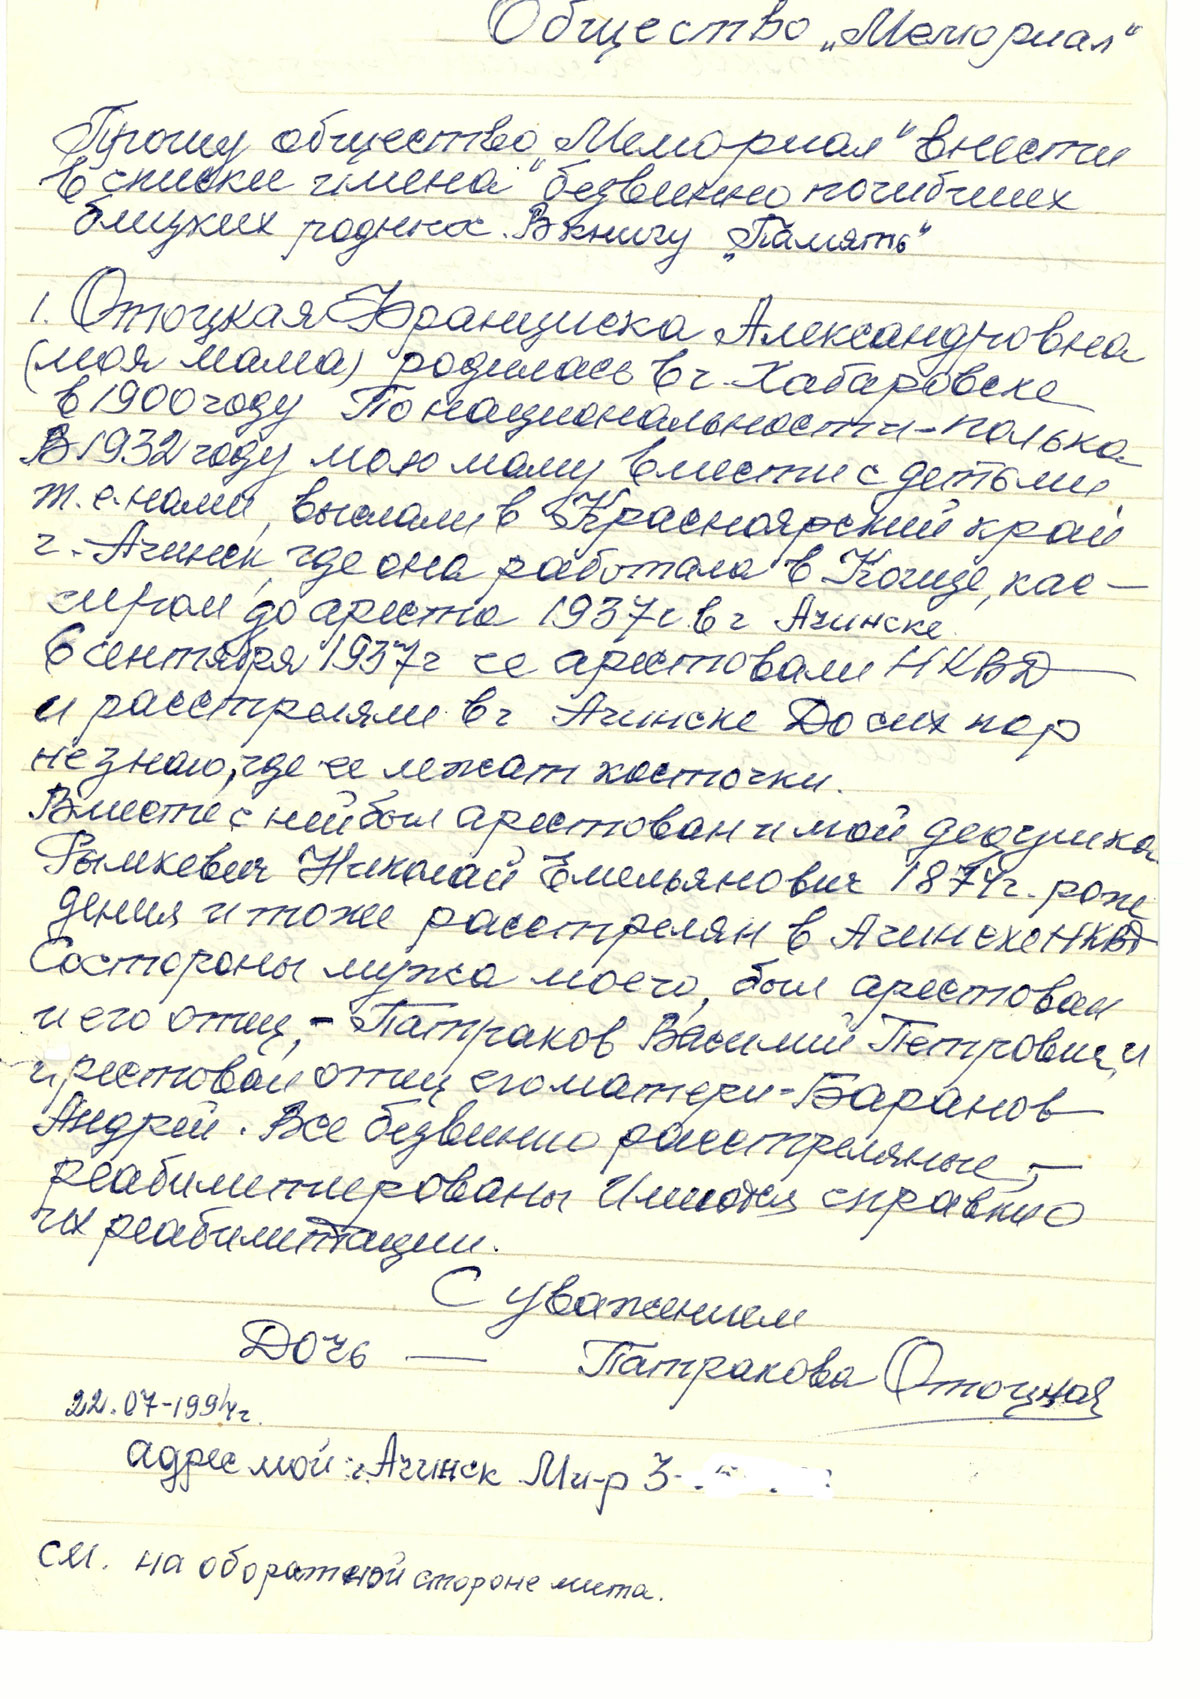 Общество „Мемориал"
Прошу общество „Мемориал" внести
в списки имена безвинно погибших
близких родных. В книгу „Память"
1. Отоцкая Франциска Александровна
(моя мама) родилась в г. Хабаровске
в 1900 году По национальности - полька
В 1932 году мою маму вместе с детьми
т.е. нами, выслали в Красноярский край
г. Ачинск, где она работала в Когизе, кас-
сиром до ареста 1937 г. в г Ачинске.
6 сентября 1937 г ее арестовали НКВД
и расстреляли в г Ачинске До сих пор
не знаю, где ее лежат косточки.
Вместе с ней был арестован и мой дедушка
Рымкевич Николай Емельянович 1874 г. рож
дения и тоже расстрелян в Ачинске НКВД
Со стороны мужа моего, был арестован
и его отец, - Патраков Василий Петрович, и
арестован отец его матери - Баранов
Андрей. Все безвинно расстреляные, -
реабилитированы Имеются справки о
их реабилитации.
С уважением
Дочь — Патракова Отоцкая
22.07-1994 г.
адрес мой: г. Ачинск М-и-р 3-
см. на оборатной стороне листа.